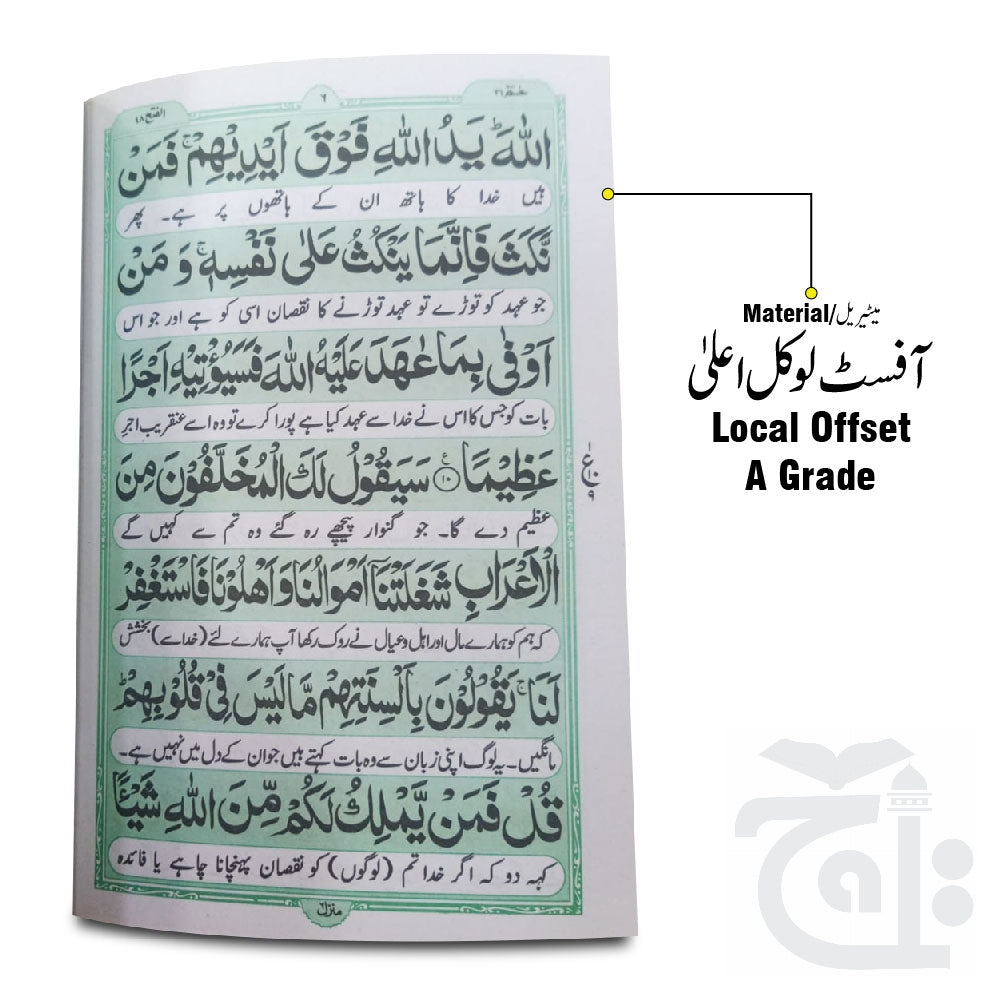 الفتح ٤٨
٦
حٰمٓ ٢٦
اللّٰهَ ؕ يَدُ اللّٰهِ فَوْقَ اَيْدِيْهِمْ ۚ فَمَنْ
ہیں خدا کا ہاتھ ان کے ہاتھوں پر ہے۔ پھر
نَّكَثَ فَاِنَّمَا يَنْكُثُ عَلٰى نَفْسِهٖ ۚ وَ مَنْ
جو عہد کو توڑے تو عہد توڑنے کا نقصان اسی کو ہے اور جو اس
اَوْفٰى بِمَا عٰهَدَ عَلَيْهُ اللّٰهَ فَسَيُؤْتِيْهِ اَجْرًا
بات کو جس کا اس نے خدا سے عہد کیا ہے پورا کرے تو وہ اسے عنقریب اجر
عَظِيْمًا ۧ ۱۰ سَيَقُوْلُ لَكَ الْمُخَلَّفُوْنَ مِنَ
عظیم دے گا۔ جو گنوار پیچھے رہ گئے وہ تم سے کہیں گے
الْاَعْرَابِ شَغَلَتْنَاۤ اَمْوَالُنَا وَ اَهْلُوْنَا فَاسْتَغْفِرْ
کہ ہم کو ہمارے مال اور اہل و عیال نے روک رکھا آپ ہمارے لئے (خدا سے) بخشش
لَنَا ۚ يَقُوْلُوْنَ بِاَلْسِنَتِهِمْ مَّا لَيْسَ فِيْ قُلُوْبِهِمْ ؕ
مانگیں۔ یہ لوگ اپنی زبان سے وہ بات کہتے ہیں جو ان کے دل میں نہیں ہے۔
قُلْ فَمَنْ يَّمْلِكُ لَكُمْ مِّنَ اللّٰهِ شَيْـًٔا
کہہ دو کہ اگر خدا تم (لوگوں) کو نقصان پہنچانا چاہے یا فائدہ
منزل
میٹیریل/Material
آفسٹ لوکل اعلیٰ
Local Offset
A Grade